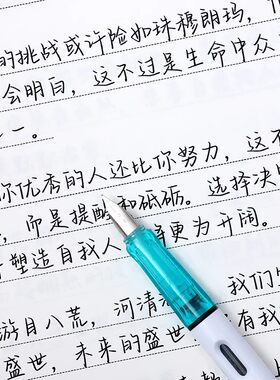 的挑战或许险如珠穆朗玛，
会明白，这不过是生命中众
一。
你优秀的人还比你努力，这不
，而是提醒和砥砺。选择决
塑造自我人 更为开阔。
游目八荒，河清 我们
盛世，未来的盛世 有我